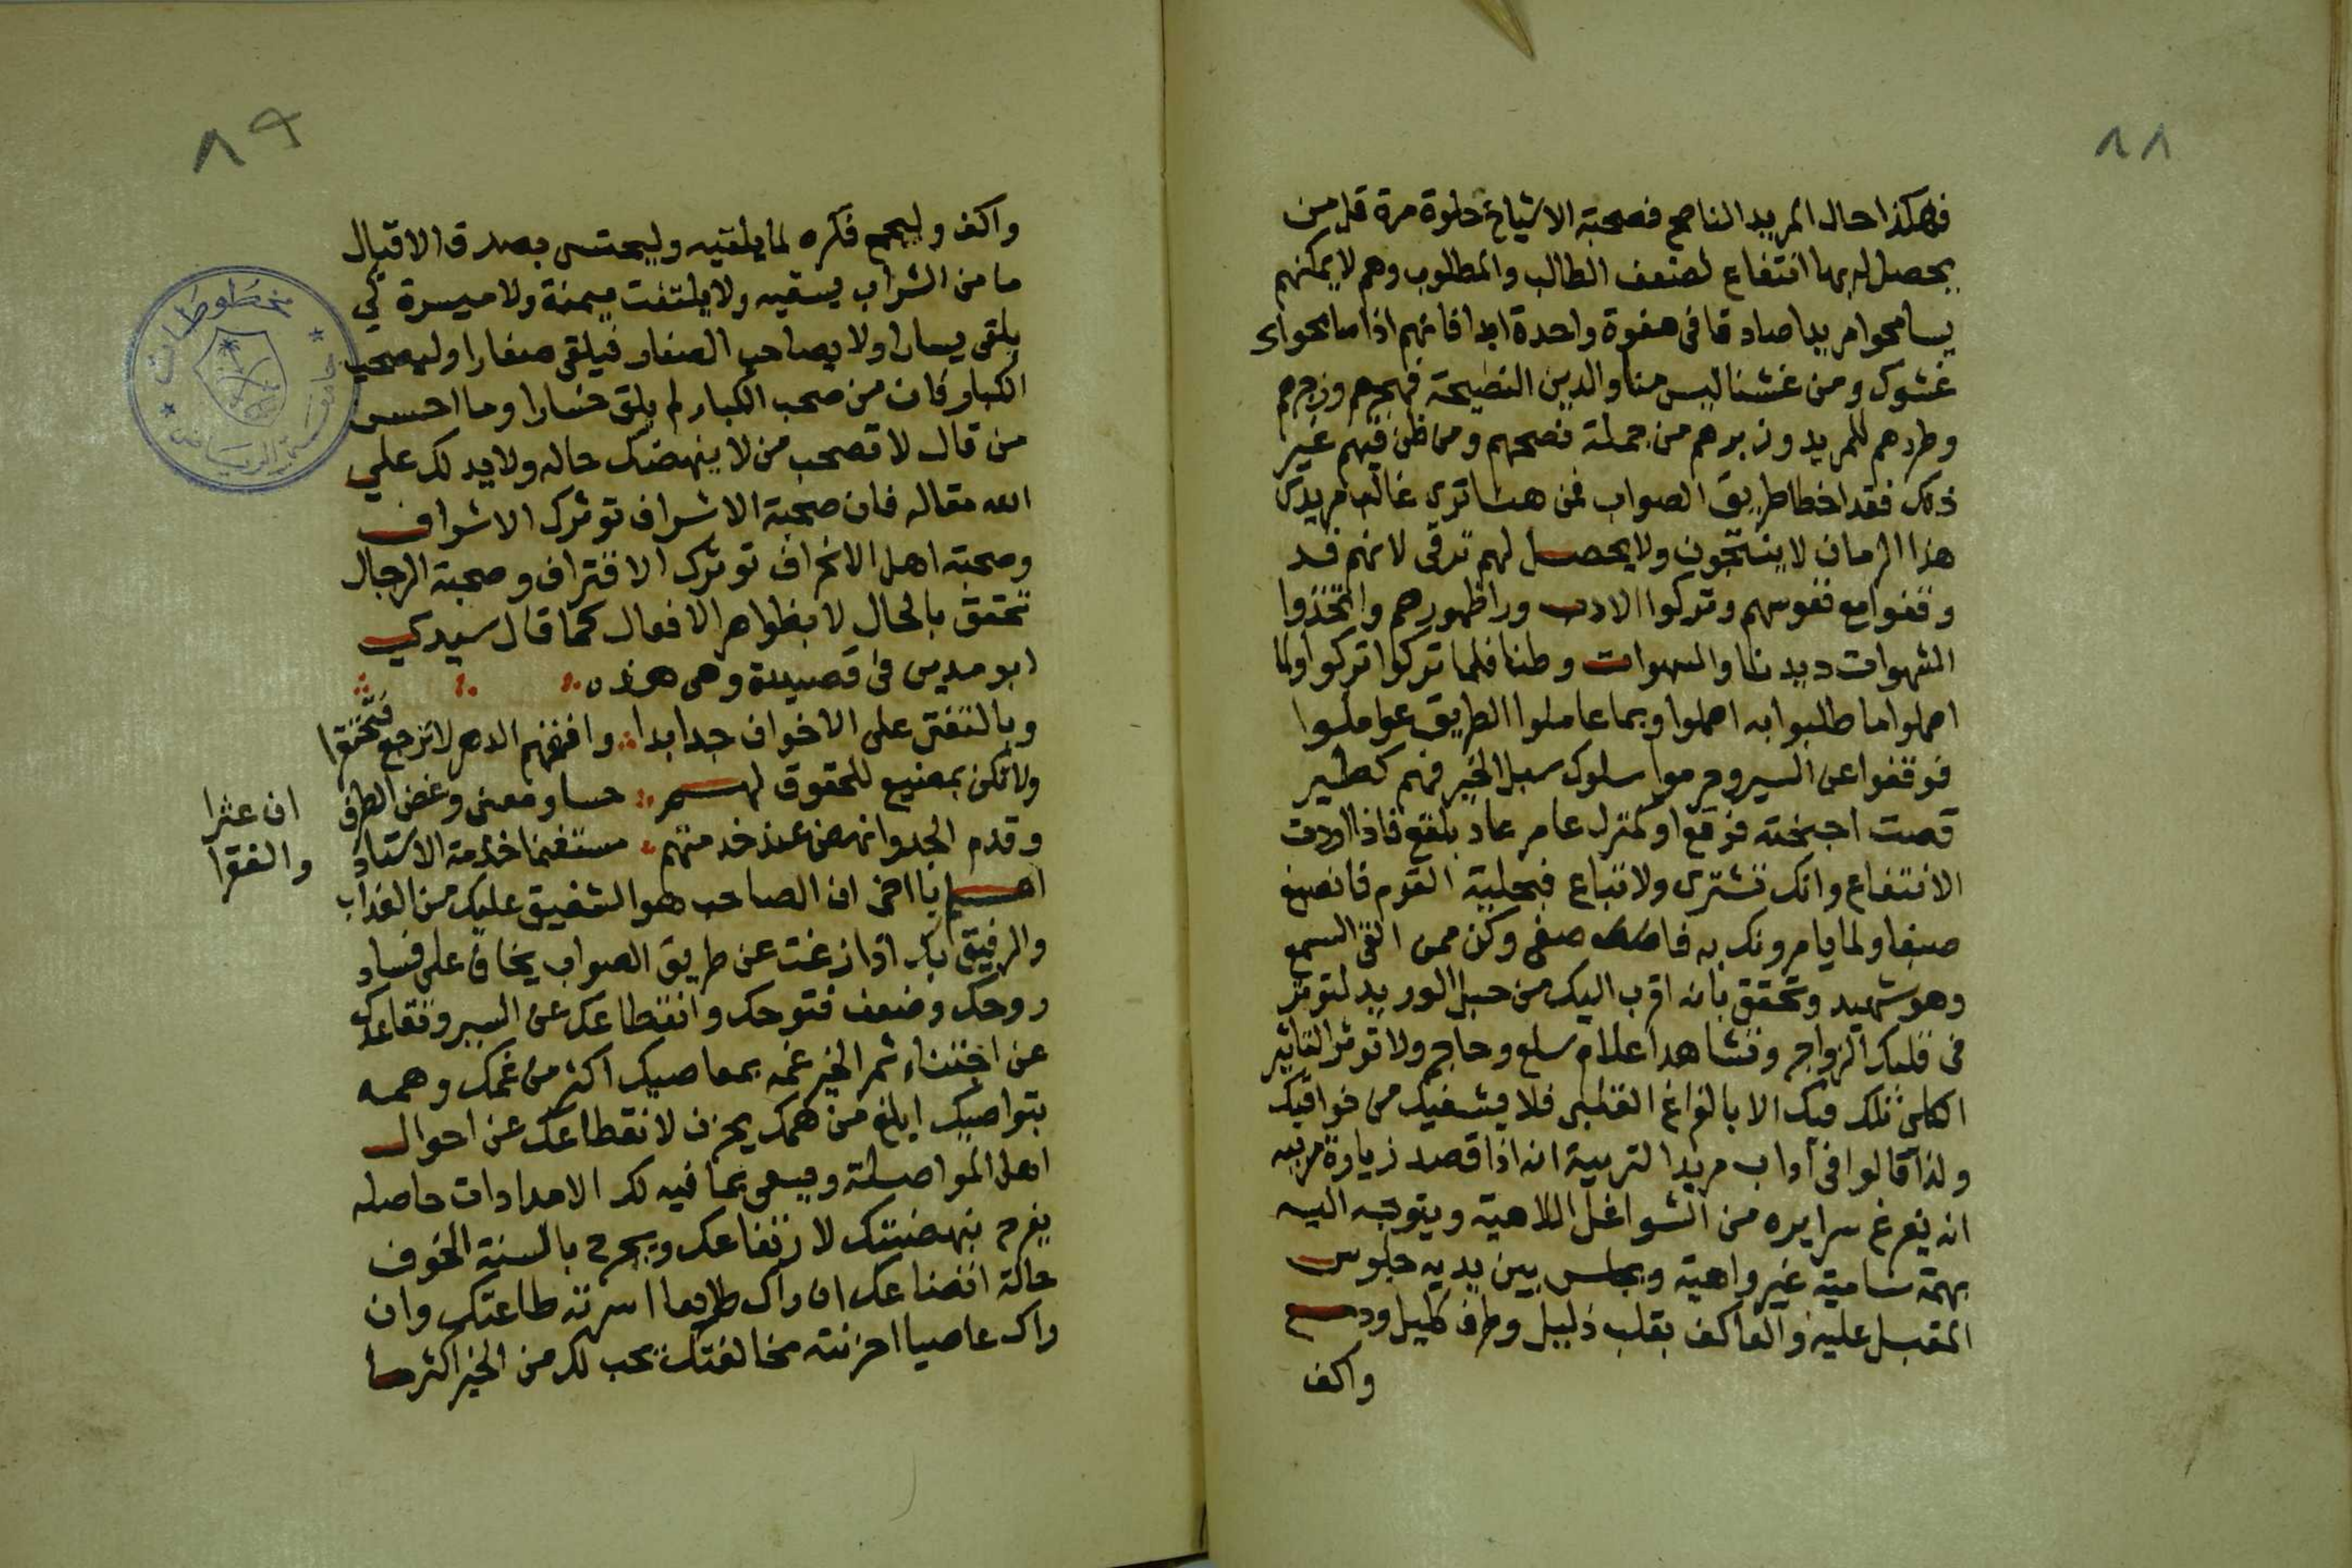 ٨٨
فهكذا حال المريد الناصح فصحبة الاشياخ حلوة مرة قل من
يحصل له بها انتفاع لضعف الطالب والمطلوب وهم لا يمكنهم
يسامحوا مريدا صادقا في هفوة واحدة ابدا فانهم اذا سامحواك
غشوك ومن غشنا ليس منا والدين النصيحة فهجرهم وزجرهم
وطردهم للمريد وزبرهم من جملة نصحهم ومن ظن فيهم غير
ذلك فقد اخطا طريق الصواب فمن هنا تري غالب مريدي
هذا الزمان لا ينتجون ولا يحصل لهم ترقي لانهم قد
وقفوا مع نفوسهم وتركوا الادب ورا ظهورهم واتخذوا
الشهوات ديدنا والسهوات وطنا فلما تركوا تركوا ولما
اهملوا ما طلبوا به اهملوا وبما عاملوا الطريق عوملوا
فوقفوا عن السير وحرموا سلوك سبل الخير فهم كطير
قصت اجنحته فوقع او كمنزل عامر عاد بلقع فاذا اردت
الانتفاع وانك تشتري ولا تباع فبحلية القوم فانصبغ
صبغا ولما يامرونك به فاصغ صغي وكن ممن القى السمع
وهو شهيد وتحقق بانه اقرب اليك من حبل الوريد لتوثر
في قلبك الزواجر وتشاهد اعلام سلع وحاجر ولا توثر التاثير
الكلي تلك فيك الا بالفراغ القلبي فلا يشفيك من فواقيك
ولذا قالوا في آداب مريد التربية انه اذا قصد زيارة مربيه
انه يفرغ سرايره من الشواغل اللاهية ويتوجه اليه
بهمة سامية غير واهية ويجلس بين يديه جلوس
المقبل عليه والعاكف بقلب ذليل وطرف كليل ودمع
واكف
٨٩
واكف وليجمع فكره لما يلقيه وليحتسى بصدق الاقبال
ما من الشراب يسقيه ولا يلتفت يمنة ولا ميسرة كي
يلقى يسارا ولا يصاحب الصغار فيلقى صغارا وليصحب
الكبار فان من صحب الكبار لم يلق خسارا وما احسن
من قال لا تصحب من لا ينهضك حاله ولا يدلك علي
الله مقاله فان صحبة الاشراف تورثك الاشراف
وصحبة اهل الانحراف تورثك الاقتراف وصحبة الرجال
تحقق بالحال لا بظواهر الافعال كما قال سيدي
ابو مدين في قصيدة وهي هذه
وبالتفتي على الاخوان جد ابدا وافنهم الدهر لا ترجع فتحتقرا
ولا تكن بمضيع للحقوق لهم حسا ومعنى وغض الطرف ان عثرا
وقدم الجد وانهض عند خدمتهم مستغنما خدمة الاستاذ والفقرا
اعلم يا اخي ان الصاحب هو الشفيق عليك من العذاب
والرفيق بك اذا زغت عن طريق الصواب يخاف على فساد
روحك وضعف فتوحك وانقطاعك عن السير وتقاعدك
عن اجتناء ثمر الخير غمه بمعاصيك اكثر من غمك وهمه
بتواصيك ابلغ من همك يحزن لانقطاعك عن احوال
اهل المواصلة ويسعى بما فيه لك الامدادات حاصله
يفرح بنهضتك لارتفاعك ويجرح بالسنة الخوف
حالة اتضاعك ان راك طايعا اسرته طاعتك وان
راك عاصيا احزنته مخالفتك يحب لك من الخير اكثر مما
مخطوطات
جامعة الرياض